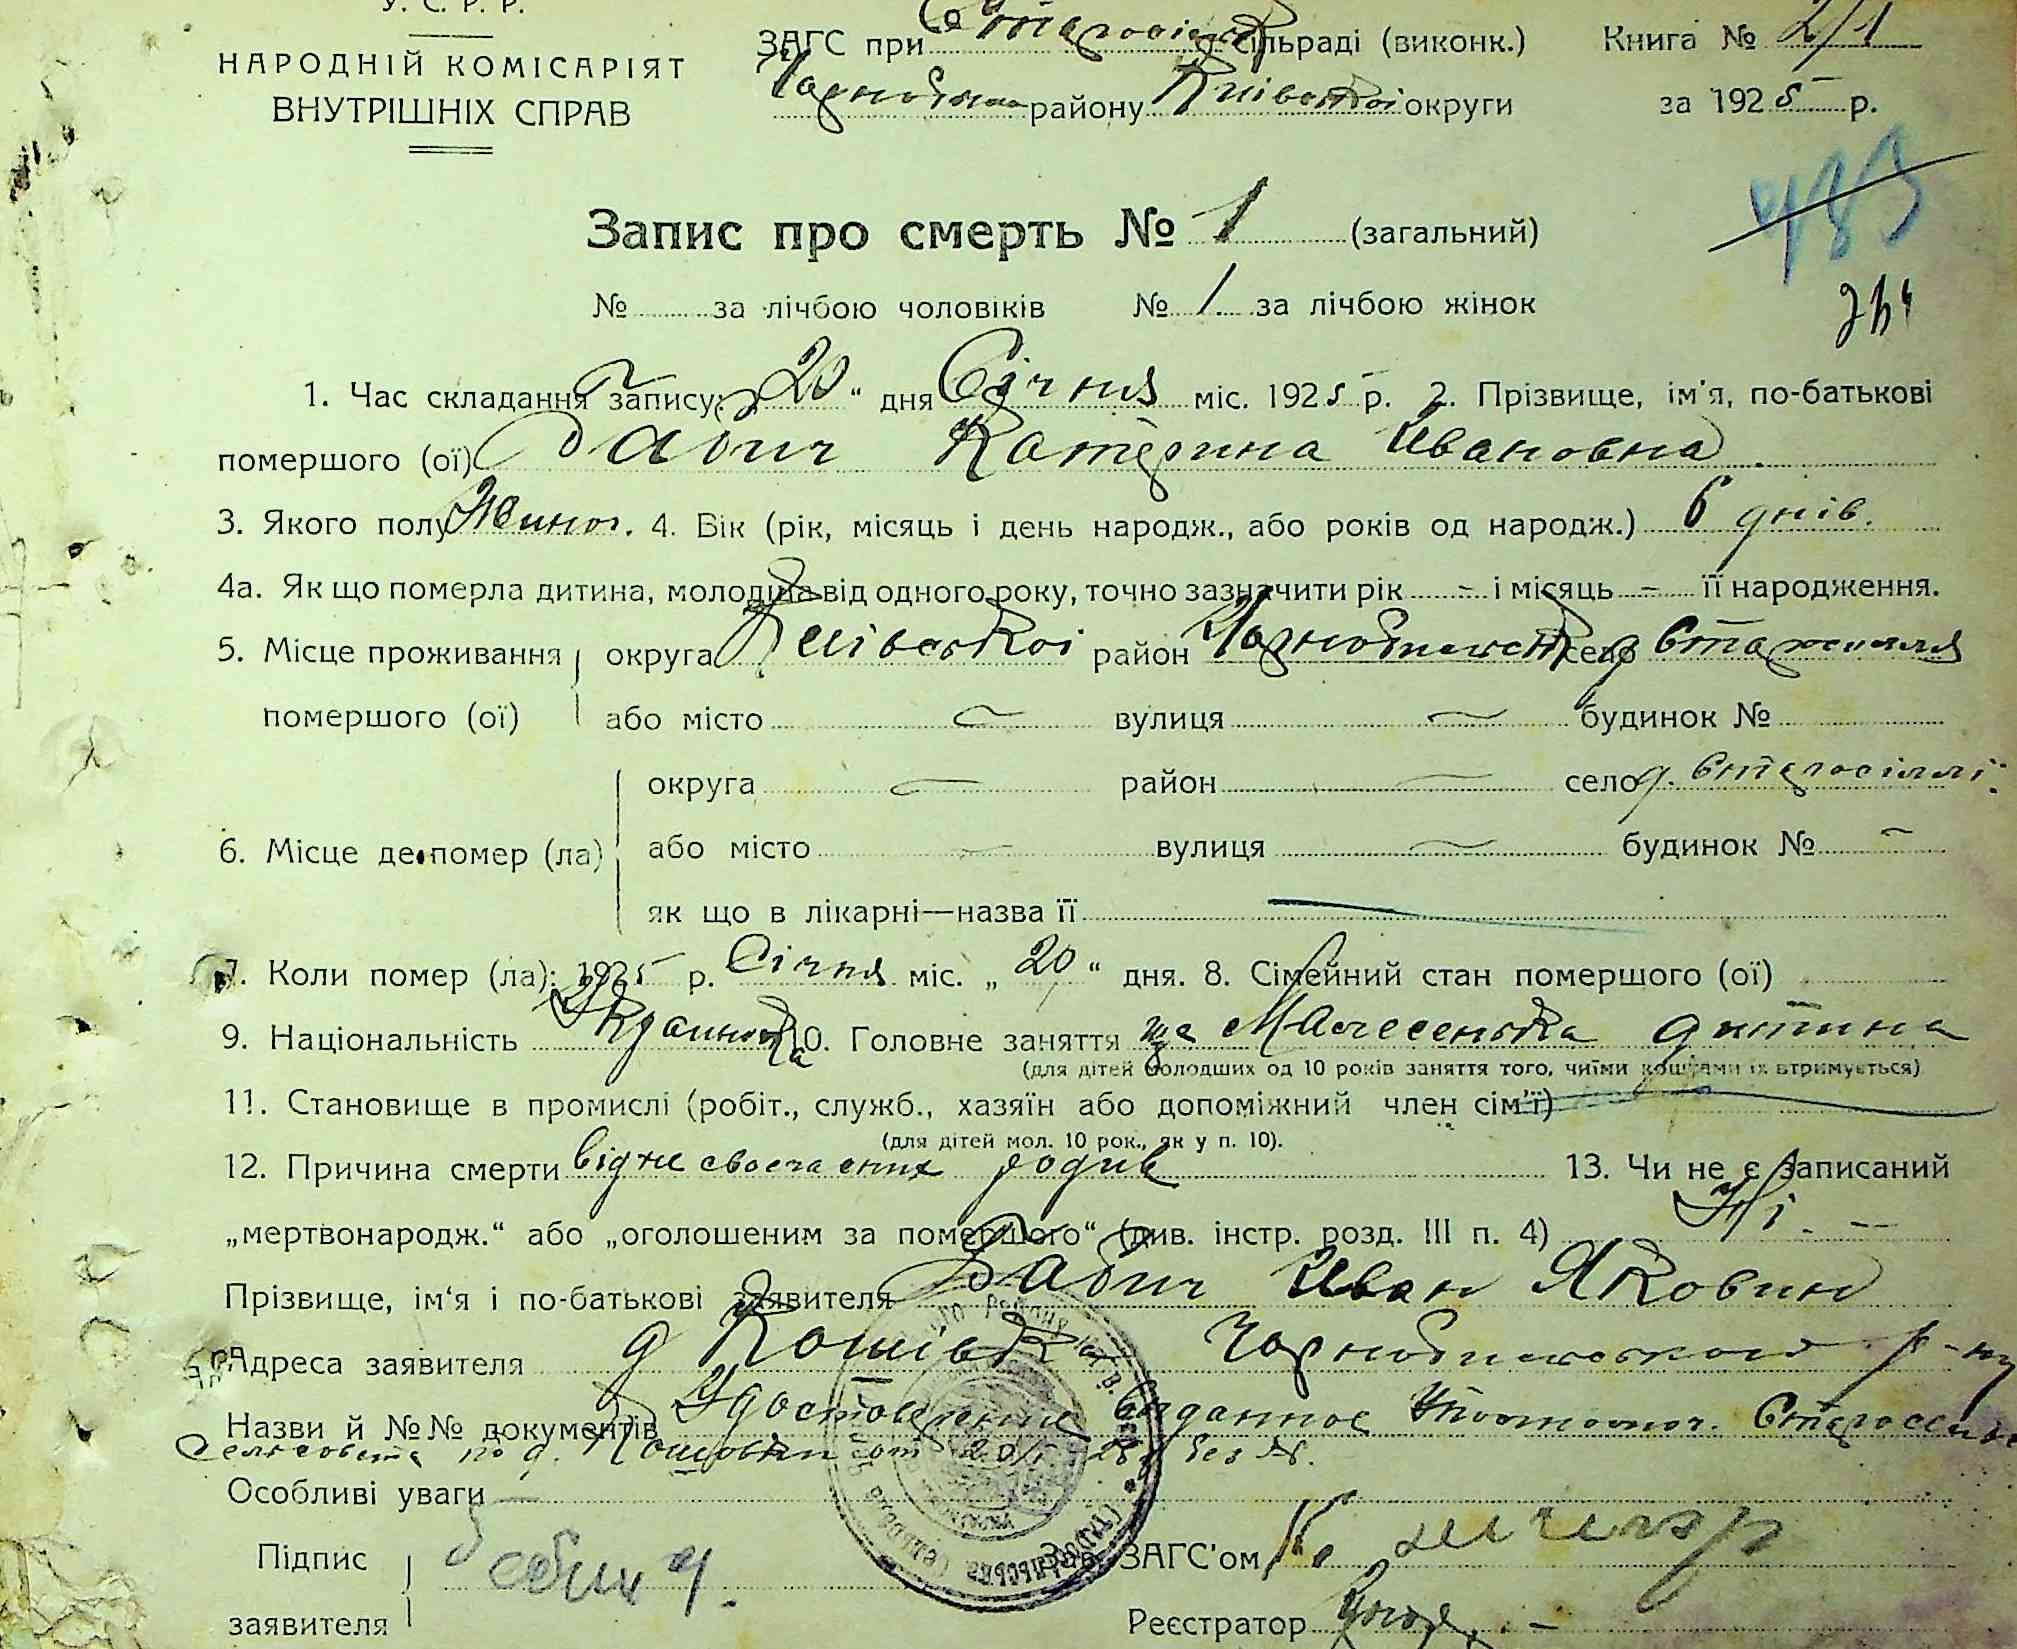 У. С. Р. Р.
НАРОДНІЙ КОМІСАРІЯТ
ВНУТРІШНІХ СПРАВ
ЗАГС при Старосільск. сільраді (виконк.) Книга № 2/1
району Київськоі округи за 1925 р.
483
Запис про смерть № 1 (загальний)
№ за лічбою чоловіків № 1 за лічбою жінок
1. Час складання запису: „20“ дня Січня міс. 1925 р. 2. Прізвище, ім'я, по-батькові
помершого (ої) Бабич Катерина Ивановна
3. Якого полу Жиноч. 4. Вік (рік, місяць і день народж., або років од народж.) 6 днів.
4а. Як що померла дитина, молодша від одного року, точно зазначити рік - і місяць - її народження.
5. Місце проживання округа Київськоі район село Старосілля
помершого (ої) або місто вулиця будинок №
округа район село д. Старосіллі
6. Місце де помер (ла) або місто вулиця будинок №
як що в лікарні—назва її
7. Коли помер (ла): 1925 р. Січня міс. „20“ дня. 8. Сімейний стан помершого (ої)
9. Національність Украинка 10. Головне заняття ще Малесенька дитина
(для дітей молодших од 10 років заняття того, чиїми коштами їх втримується)
11. Становище в промислі (робіт., служб., хазяїн або допоміжний член сім'ї)
(для дітей мол. 10 рок., як у п. 10).
12. Причина смерти від не своєчасних родив 13. Чи не є записаний
„мертвонародж.“ або „оголошеним за помершого“ (див. інстр. розд. III п. 4) Ні. —
Прізвище, ім'я і по-батькові заявителя Бабич Иван Якович
Адреса заявителя д Кошівка Чорнобильского р-ну
Назви й №№ документів Удостоверение выданное Уполномоч. Старосельс
Сельсовета по д. Кошовки от 20/I-25 г без №.
Особливі уваги —
Підпис Бабич ЗАГС'ом
заявителя Реєстратор